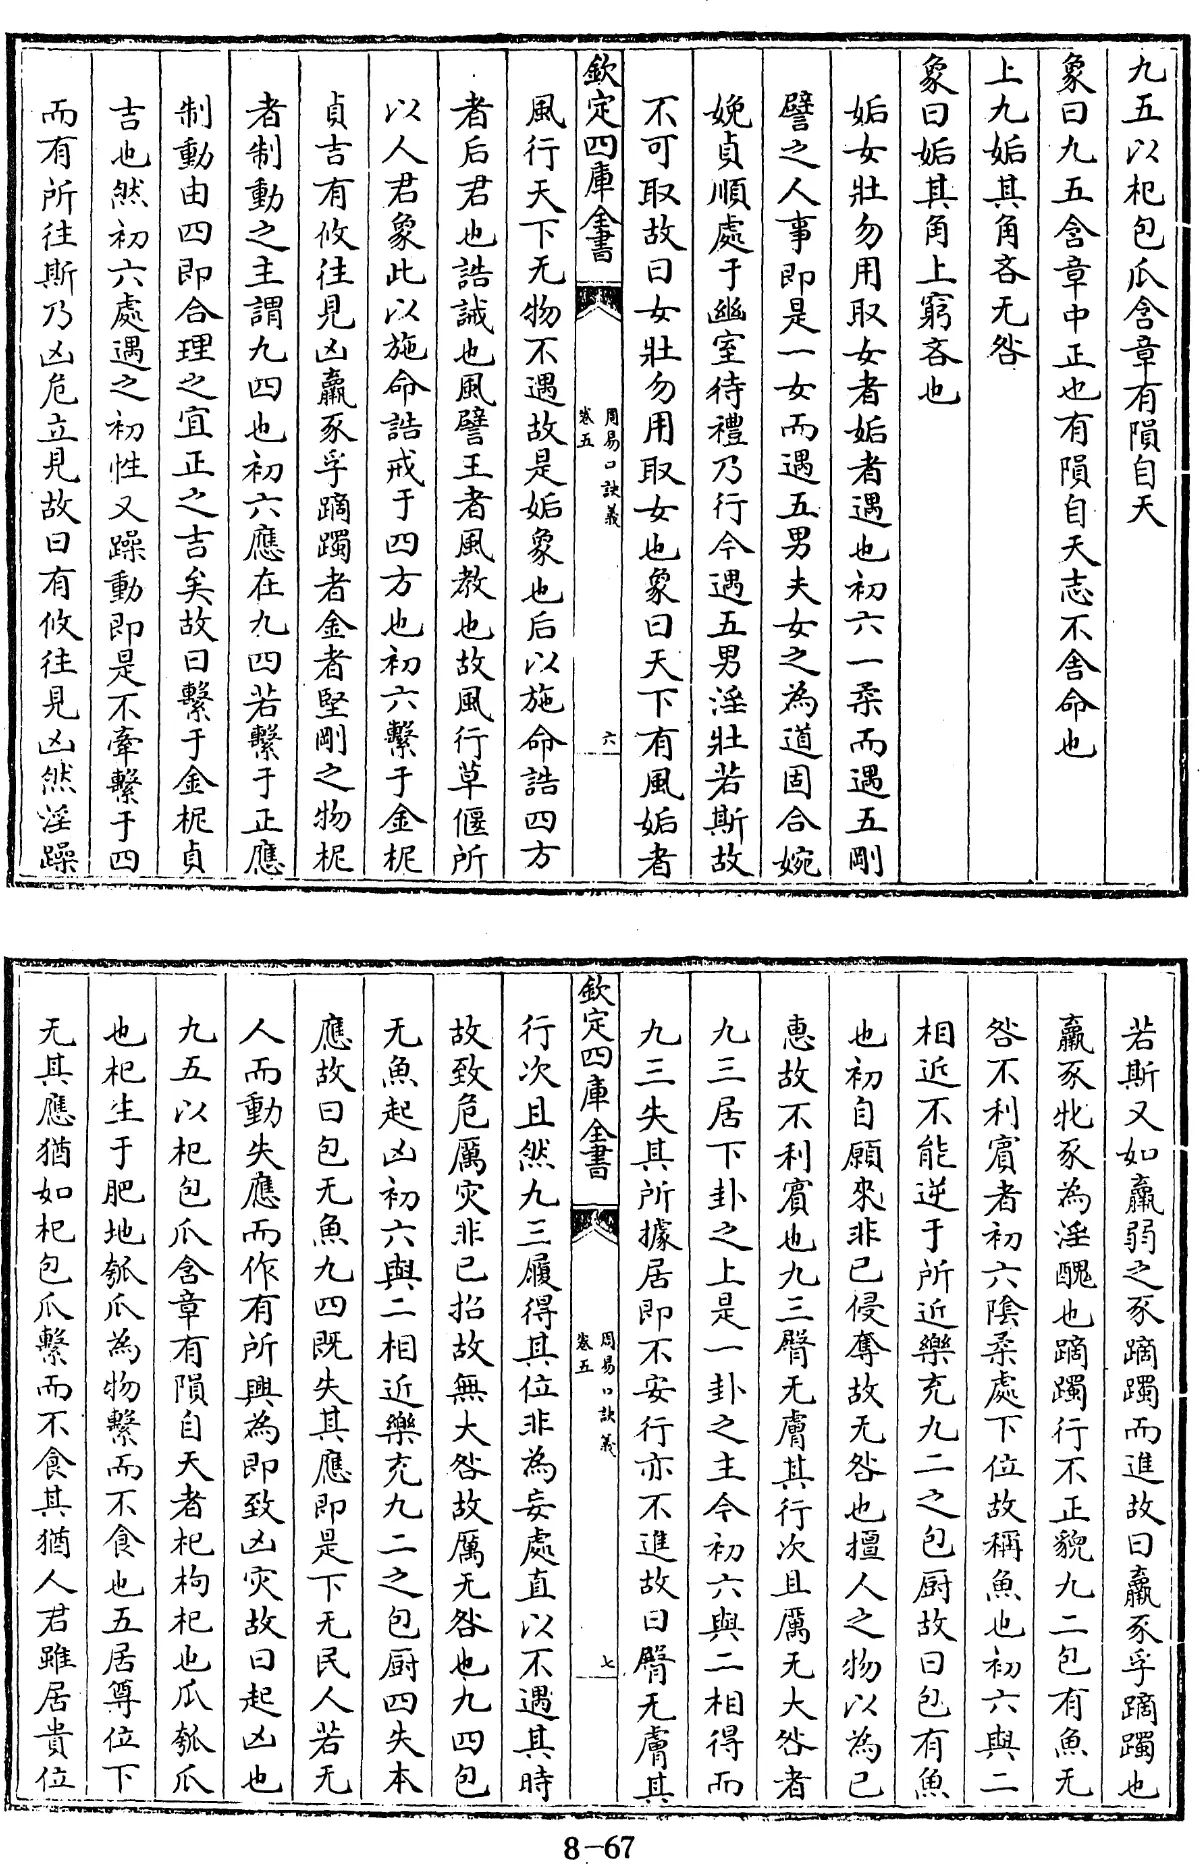 九五以杞包瓜含章有隕自天
象曰九五含章中正也有隕自天志不舍命也
上九姤其角吝无咎
象曰姤其角上窮吝也
姤女壯勿用取女者姤者遇也初六一柔而遇五剛
譬之人事即是一女而遇五男夫女之為道固合婉
娩貞順處于幽室待禮乃行今遇五男淫壯若斯故
不可取故曰女壯勿用取女也象曰天下有風姤者
欽定四庫全書
周易口訣義
卷五
六
風行天下无物不遇故是姤象也后以施命誥四方
者后君也誥誡也風譬王者風教也故風行草偃所
以人君象此以施命誥戒于四方也初六繫于金柅
貞吉有攸往見凶羸豕孚蹢躅者金者堅剛之物柅
者制動之主謂九四也初六應在九四若繫于正應
制動由四即合理之宜正之吉矣故曰繫于金柅貞
吉也然初六處遇之初性又躁動即是不牽繫于四
而有所往斯乃凶危立見故曰有攸往見凶然淫躁
若斯又如羸弱之豕蹢躅而進故曰羸豕孚蹢躅也
羸豕牝豕為淫醜也蹢躅行不正貌九二包有魚无
咎不利賓者初六陰柔處下位故稱魚也初六與二
相近不能逆于所近樂充九二之包厨故曰包有魚
也初自願來非已侵奪故无咎也擅人之物以為已
惠故不利賓也九三臀无膚其行次且厲无大咎者
九三居下卦之上是一卦之主今初六與二相得而
九三失其所據居即不安行亦不進故曰臀无膚其
欽定四庫全書
周易口訣義
卷五
七
行次且然九三履得其位非為妄處直以不遇其時
故致危厲灾非已招故無大咎故厲无咎也九四包
无魚起凶初六與二相近樂充九二之包厨四失本
應故曰包无魚九四既失其應即是下无民人若无
人而動失應而作有所興為即致凶灾故曰起凶也
九五以杞包瓜含章有隕自天者杞枸杞也瓜瓠瓜
也杞生于肥地瓠瓜為物繫而不食也五居尊位下
无其應猶如杞包瓜繫而不食其猶人君雖居貴位
8-67